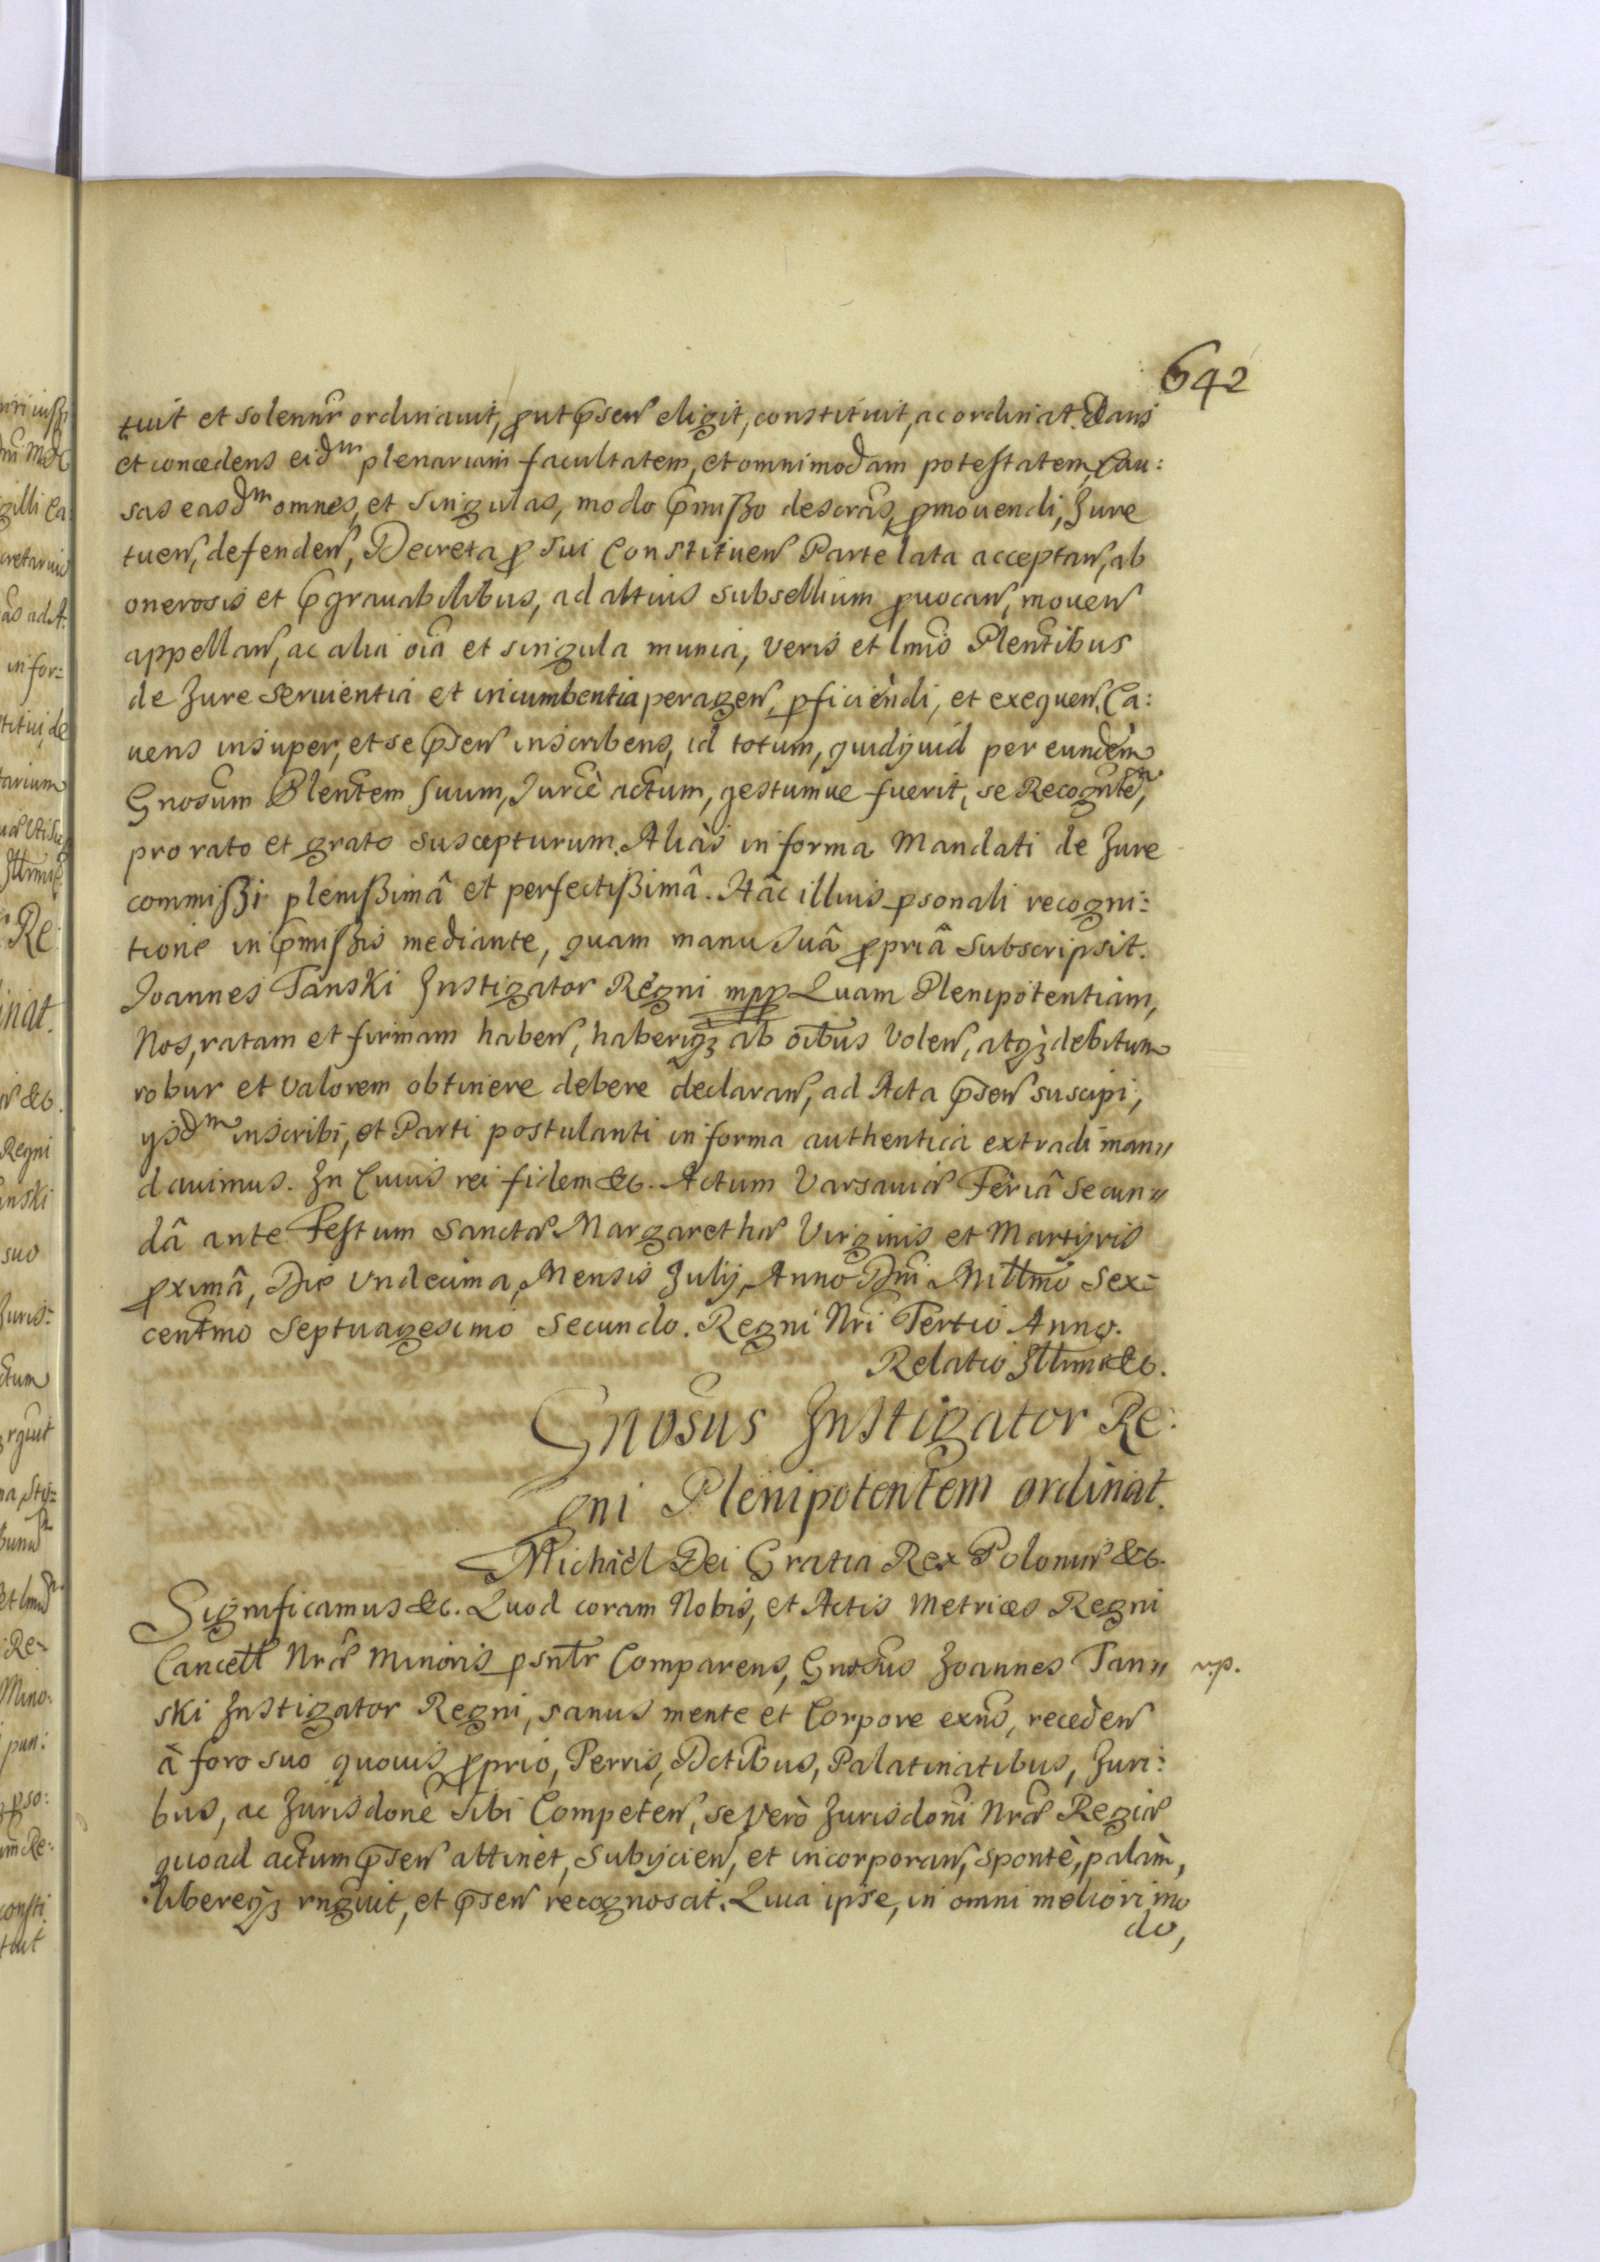 642
tuit et solennr ordinavit, prout psen eligit, constituit, ac ordinat. Dans
et concedens eidm plenariam facultatem, et omnimodam potestatem, Cau:
sas easdm omnes, et singulas, modo pmißo descras, pmovendi, Jure
tuen, defenden, Decreta p sui Constituen Parte lata acceptan, ab
onerosis et pgravabilibus, ad altius subsellium pvocan, moven
appellan, ac alia oia et singula munia, veris et lmis Plentibus
de Jure servientia et incumbentia peragen, pficiendi, et exequen. Ca:
vens insuper, et se psen inscribens, id totum, quidquid per eundem
Gnosum Plentem suum, Jurce actum, gestumve fuerit, se Recognte,
pro rato et grato suscepturum. Alias in forma Mandati de Jure
commißi plenißimâ et perfectißimâ. Hâc illius psonali recogni:
tione in pmißis mediante, quam manu suâ ppriâ subscripsit.
Joannes Tanski Instigator Regni mpp Quam Plenipotentiam,
Nos, ratam et firmam haben, haberiq3 ab oibus volen, atq3 debitum
robur et valorem obtinere debere declaran, ad Acta psen suscipi,
ysdm inscribi, et Parti postulanti in forma authentica extradi man〃
davimus. In Cuius rei fidem &c. Actum Varsaviæ Feriâ secun〃
dâ ante Festum Sanctæ Margarethæ Virginis et Martyris
pximâ, Die Undecima, Mensis Julij, Anno Dni Millmo Sex=
centmo Septuagesimo Secundo. Regni Nri Tertio Anno.
Relatio Illmi &c.
Gnosus Instigator Re:
gni Plenipotentem ordinat.
Michaël Dei Gratia Rex Poloniæ &c.
Significamus &c. Quod coram Nobis, et Actis Metrices Regni
Cancell Nræ Minoris psntr Comparens, Gnosus Joannes Tan〃
r.p.
ski Instigator Regni, sanus mente et Corpore exns, receden
â foro suo quovis pprio, Terris, Dctibus, Palatinatibus, Juri:
bus, ac Jurisdone sibi Competen, se verò Jurisdoni Nræ Regiæ
quoad actum psen attinet, subijcien, et incorporan, spontè, palàm,
libereq3 rngvit, et psen recognoscit. Quia ipse, in omni meliori mo
do,